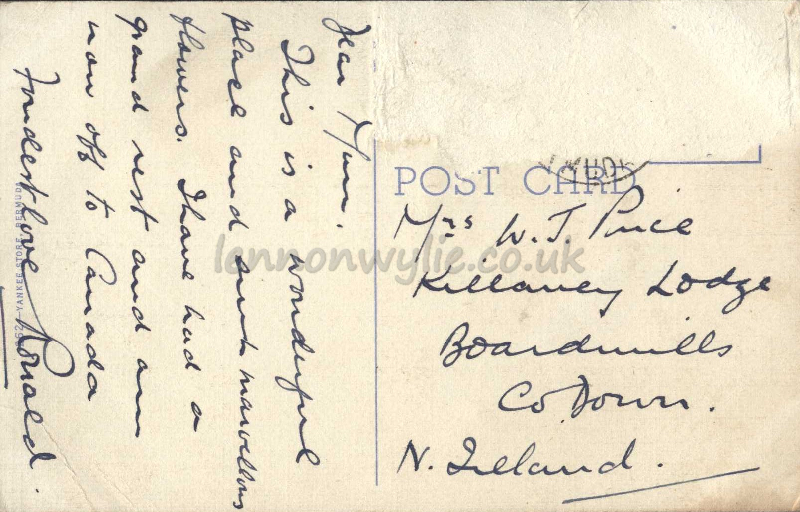 Dear Mum.
This is a wonderful
place and such marvellous
flowers. I have had a
grand rest and am
now off to Canada
Fondest love Ronald.
YANKEE STORE, BERMUDA
POST CARD
Mrs W. J. Price
Killaney Lodge
Boardmills
Co. Down.
N. Ireland.
lennonwylie.co.uk